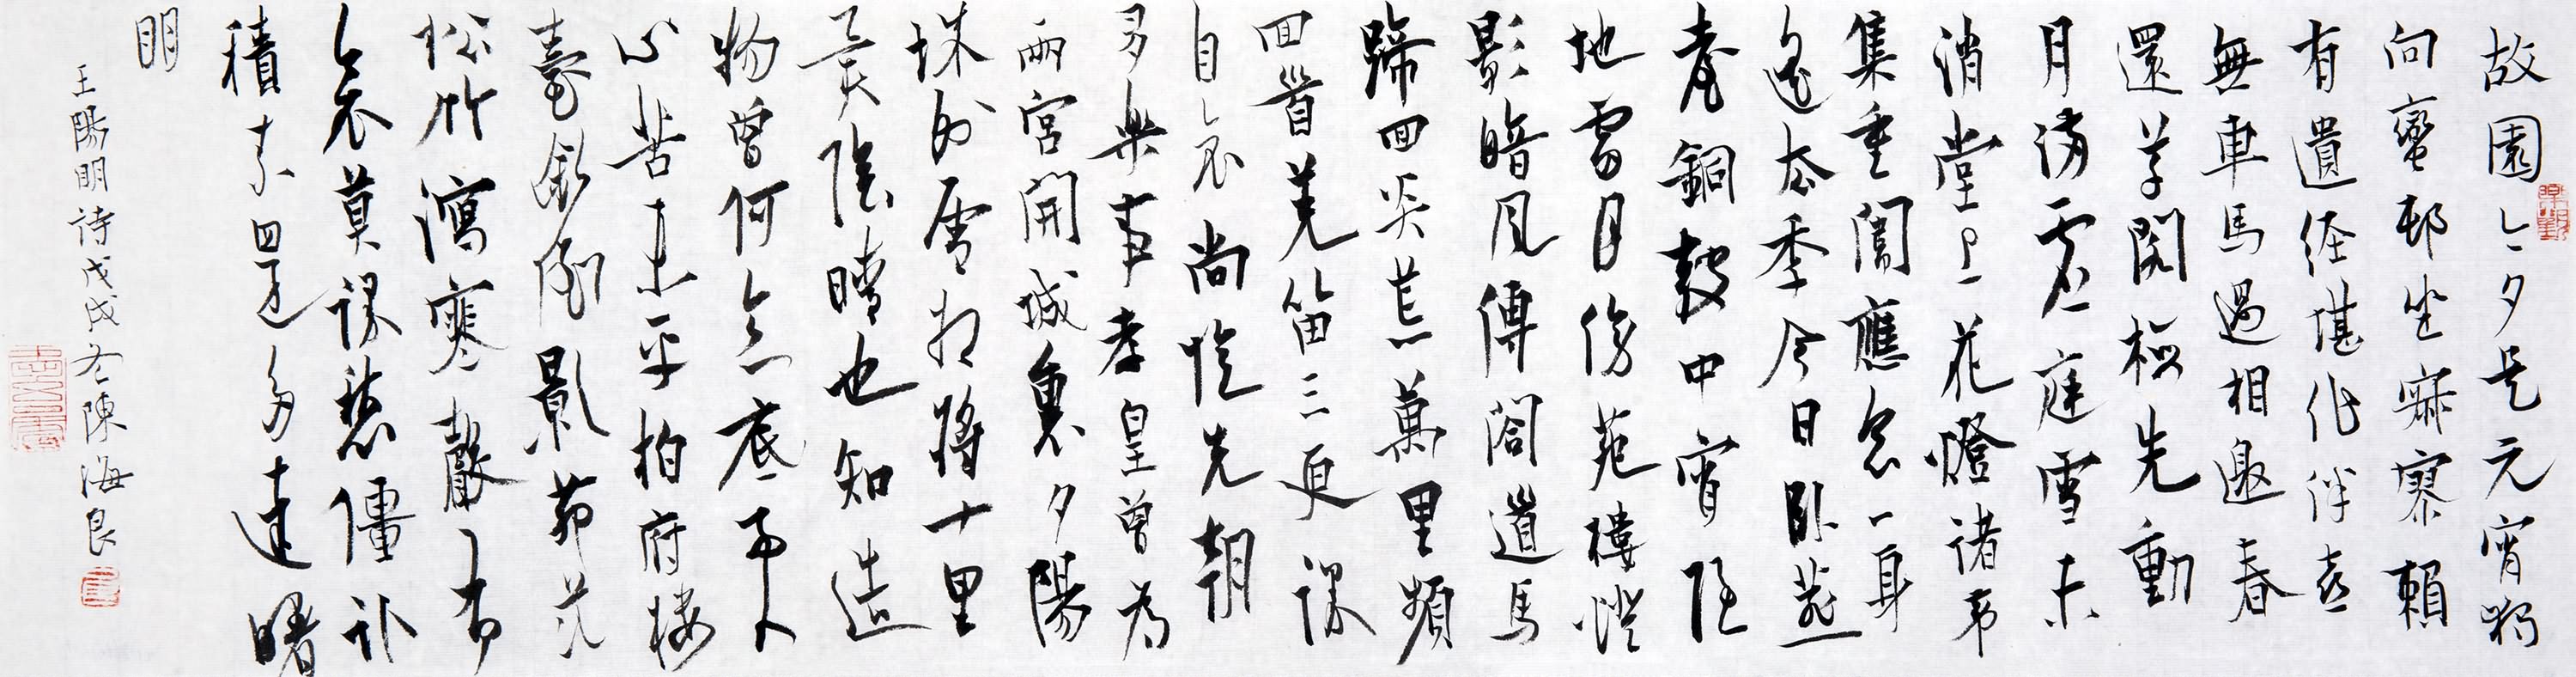 故園今夕是元宵獨
向蠻邨坐寂寥賴
有遺経堪作伴喜
無車馬過相邀春
還草閣梅先動
月滿虛庭雪未
消堂上花燈諸弟
集重闈應念一身
遙去季今日臥燕
臺銅鼓中宵隱
地雷月傍苑樓燈
影暗風傳閣道馬
蹄回炎荒萬里頻
回首羌笛三更謾
自哀尚憶先朝
多樂事孝皇曾為
兩宮開城裏夕陽
城外雪相將十里
異陰晴也知造
物曾何意底事人
心苦未平柏府樓
臺銜倒影茅茨
松竹瀉寒聲布
衾莫謾愁僵臥
積素還多達曙
明
王陽明詩戊戌冬陳海良